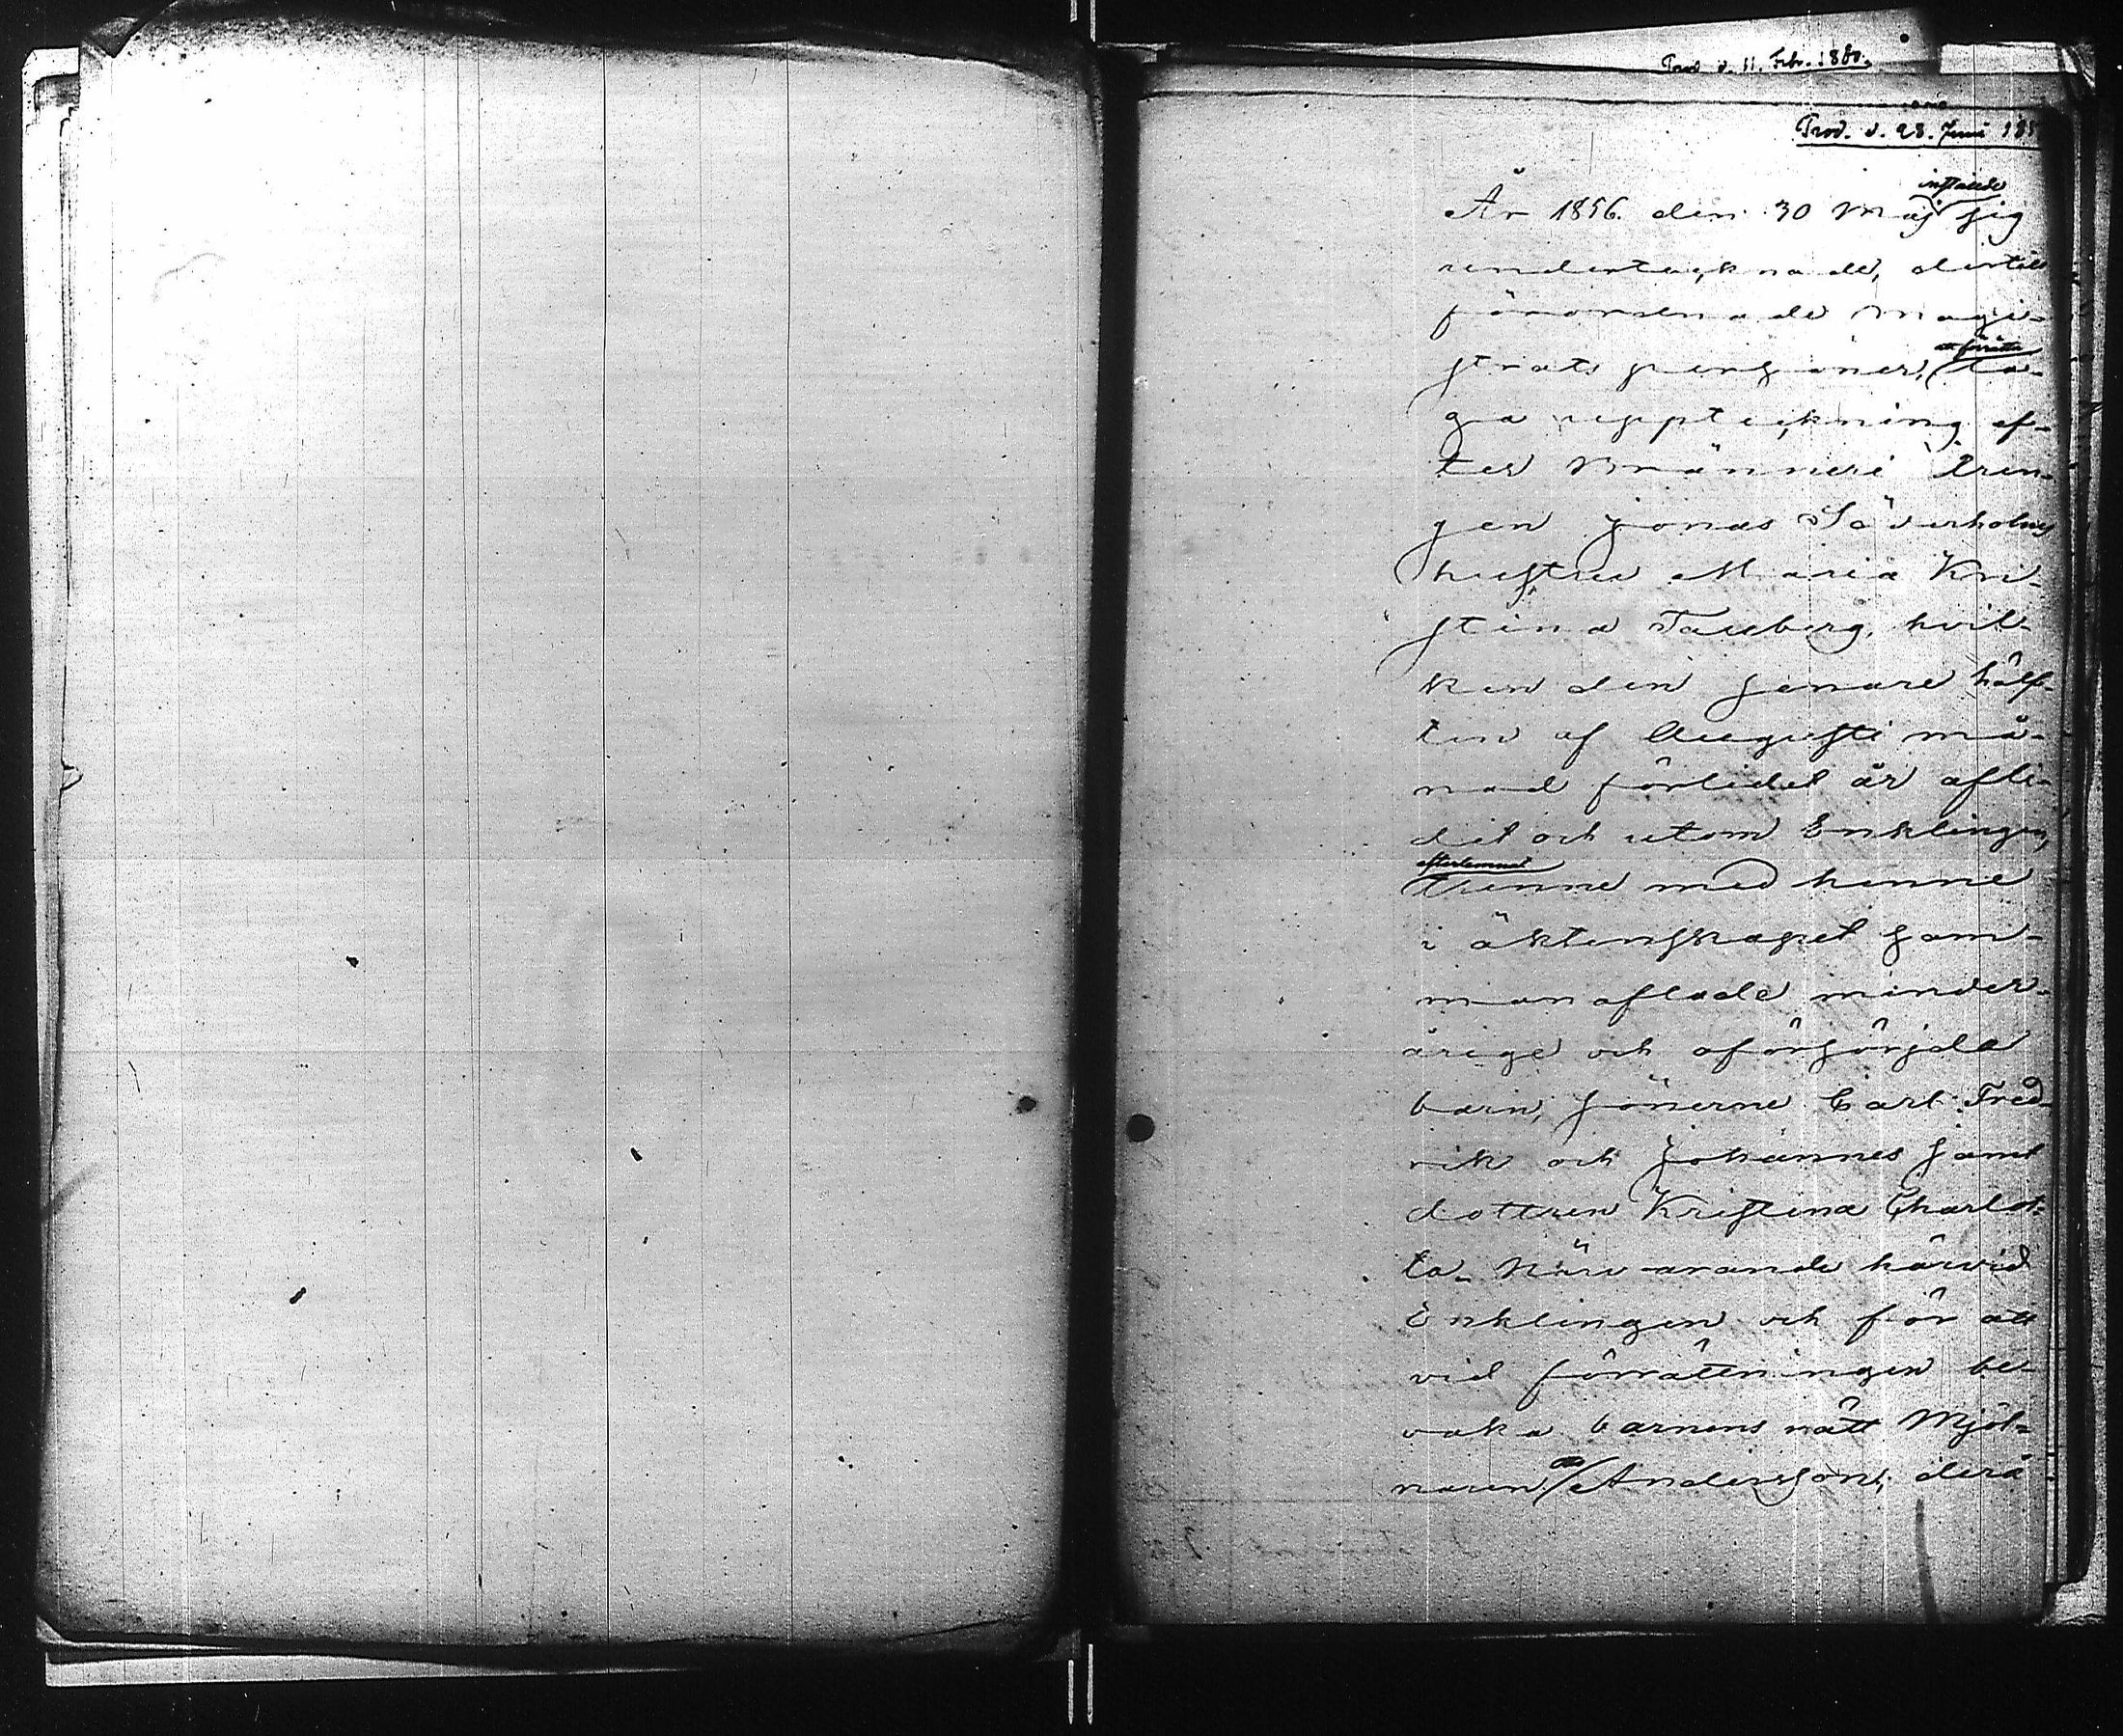 Prod. d. 11. Febr. 1880.
Prod. d. 28. Juni 185
infunno
År 1856. den 30 Maj sig
undertecknade, dertill
förordnade Magi-
att förrätta
strats personer, la-
ga uppteckning ef-
ter Bränneri dren-
gen Jonas Söderholms
hustru Maria Kri-
stina Tauberg, hvil-
ken den senare hälf-
ten af Augusti må-
nad förlidet år afli-
dit och utom Enklingen,
efterlemnat
trenne med henne
i äktenskapet sam-
manaflade minder-
årige och oförsörjda
barn, sönerne Carl Fred-
rik och Johannes samt
dottren Kristina Charlot-
ta. Närvarande härvid
Enklingen och för att
vid förrättningen be-
vaka barnens rätt Mjöl-
naren Anderson, derå